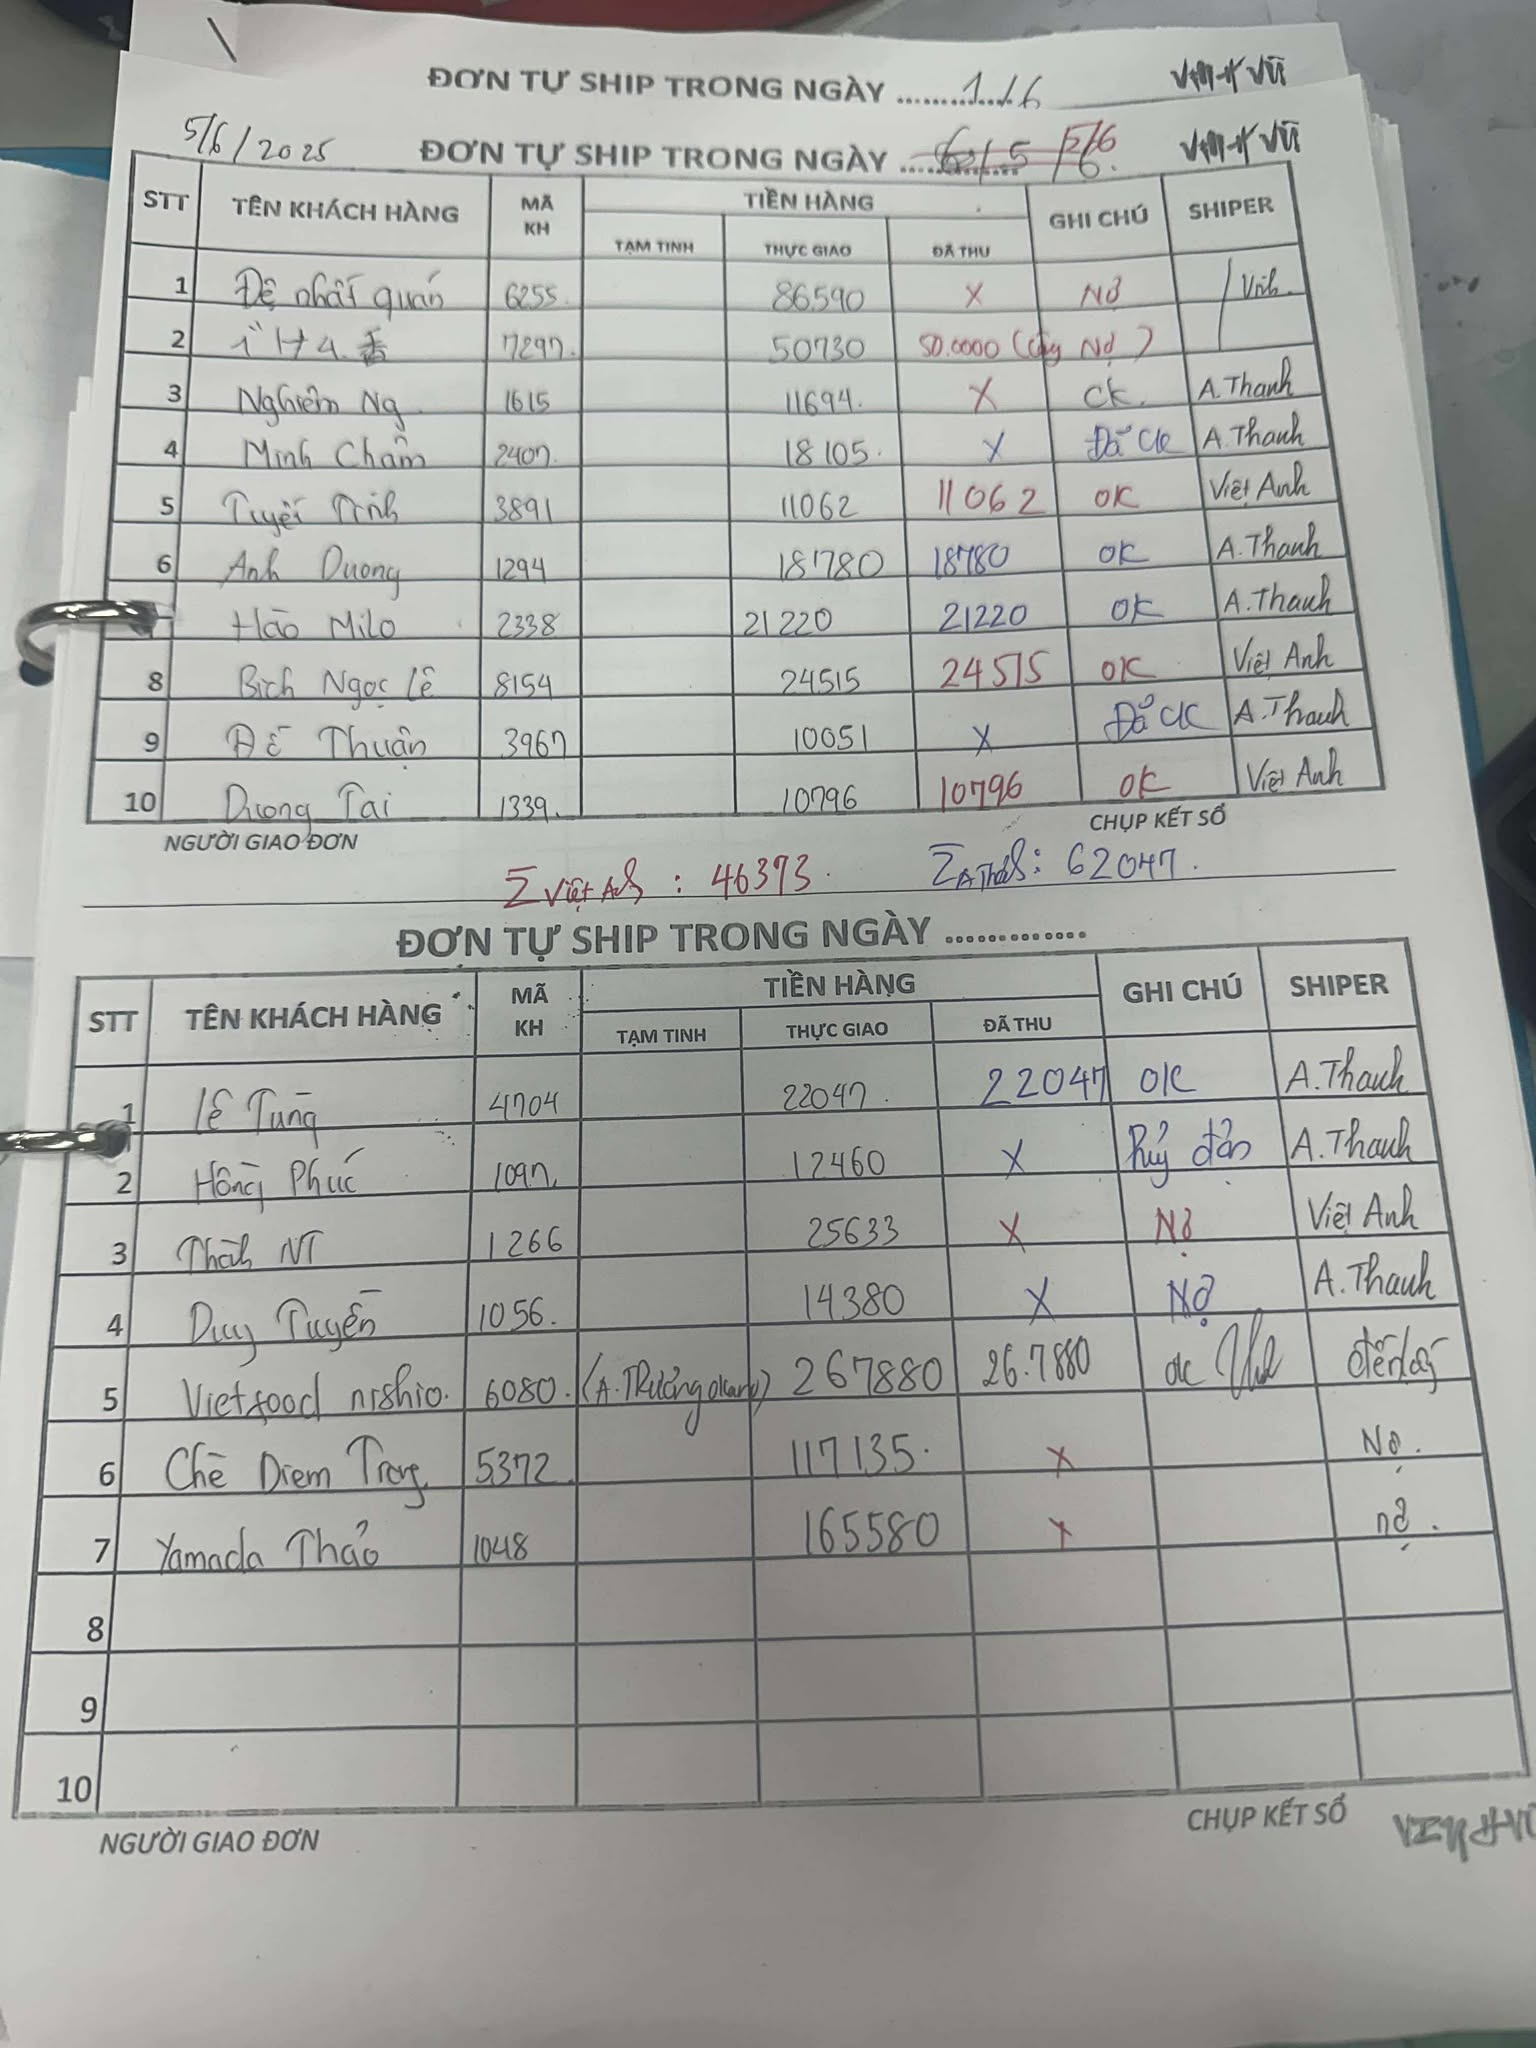 ĐƠN TỰ SHIP TRONG NGÀY ............. 1/6
5/6/2025 ĐƠN TỰ SHIP TRONG NGÀY ............. 5/6
STT TÊN KHÁCH HÀNG MÃ KH TIỀN HÀNG GHI CHÚ SHIPER
TẠM TINH THỰC GIAO ĐÃ THU
1 Đệ nhất quán 6255 86590 X Nợ Vinh
2 7297 50730 50.0000 Nợ)
3 Nghiêm Ng 1615 11694 X CK A.Thanh
4 Minh Châm 2407 18105 X Đã CK A.Thanh
5 Tuyết Trinh 3891 11062 11062 OK Việt Anh
6 Anh Duong 1294 18780 18780 OK A.Thanh
Hào Milo 2338 21220 21220 OK A.Thanh
8 Bich Ngọc Lê 8154 24515 24515 OK Việt Anh
9 Thuận 3967 10051 X Đã CK A.Thanh
10 Duong Tai 1339 10796 10796 OK Việt Anh
NGƯỜI GIAO ĐƠN CHỤP KẾT SỔ
Σ Việt Anh : 46373 Σ A Thanh : 62047
ĐƠN TỰ SHIP TRONG NGÀY .............
STT TÊN KHÁCH HÀNG MÃ KH TIỀN HÀNG GHI CHÚ SHIPER
TẠM TINH THỰC GIAO ĐÃ THU
1 Lê Tùng 4704 22047 22047 OK A.Thanh
2 Hồng Phúc 1097 12460 X Hủy đơn A.Thanh
3 Thành NT 1266 25633 X Nợ Việt Anh
4 Duy Tuyến 1056 14380 X Nợ A.Thanh
5 Vietfood nishio 6080 (A. Trường 267880 26.7880 ok
6 Chè Diem Trang 5372 117135 X Nợ
7 Yamada Thảo 1048 165580 X nợ
8
9
10
NGƯỜI GIAO ĐƠN CHỤP KẾT SỔ